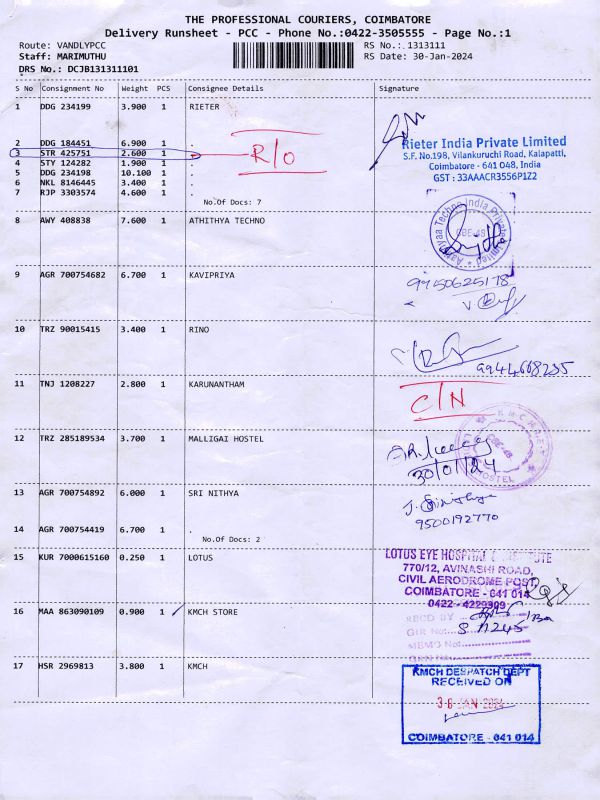 THE PROFESSIONAL COURIERS, COIMBATORE
Delivery Runsheet - PCC - Phone No.:0422-3505555 - Page No.:1
Route: VANDLYPCC RS No.: 1313111
Staff: MARIMUTHU RS Date: 30-Jan-2024
DRS No.: DCJB131311101
S No Consignment No Weight PCS Consignee Details Signature
1 DDG 234199 3.900 1 RIETER
2 DDG 184451 6.900 1 .
3 STR 425751 2.600 1 .
R/O
4 STY 224282 1.900 1 .
5 DDG 234198 10.100 1 .
6 NKL 8146445 3.400 1 .
7 RJP 3303574 4.600 1 .
No.Of Docs: 7
Rieter India Private Limited
S.F. No.198, Vilankuruchi Road, Kalapatti,
Coimbatore - 641 048, India
GST : 33AAACR3556P1Z2
8 AWY 408838 7.600 1 ATHITHYA TECHNO
9 AGR 700754682 6.700 1 KAVIPRIYA
9950625178
10 TRZ 90015415 3.400 1 RINO
9944668235
11 TNJ 1208227 2.800 1 KARUNANTHAM
C/N
12 TRZ 285189534 3.700 1 MALLIGAI HOSTEL
30/01/24
HOSTEL
13 AGR 700754892 6.000 1 SRI NITHYA
9500192770
14 AGR 700754419 6.700 1 .
No.Of Docs: 2
15 KUR 7000615160 0.250 1 LOTUS
LOTUS EYE HOSPITAL & INSTITUTE
770/12, AVINASHI ROAD,
CIVIL AERODROME POST,
COIMBATORE - 641 014
0422 - 4229909
16 MAA 863090109 0.900 1 KMCH STORE
RECD BY
GIR No:
MEMO No:
17 HSR 2969813 3.800 1 KMCH
KMCH DESPATCH DEPT
RECEIVED ON
30 JAN 2024
COIMBATORE - 641 014